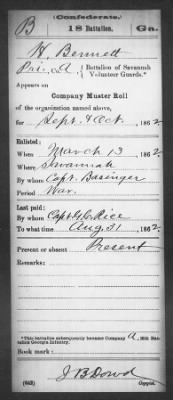 (Confederate.)
B 18 Battalion. Ga.
H. Bennett
Pri, A Battalion of Savannah
Volunteer Guards.*
Appears on
Company Muster Roll
of the organization named above,
for Sept. & Oct., 1862.
Enlisted:
When March 13, 1862.
Where Savannah
By whom Capt. Basinger
Period War.
Last paid:
By whom Capt. G. C. Rice
To what time Aug. 31, 1862.
Present or absent Present
Remarks:
*This battalion subsequently became Company A, 18th Battalion, Georgia Infantry.
Book mark:
(642) J B Dowd
Copyist.